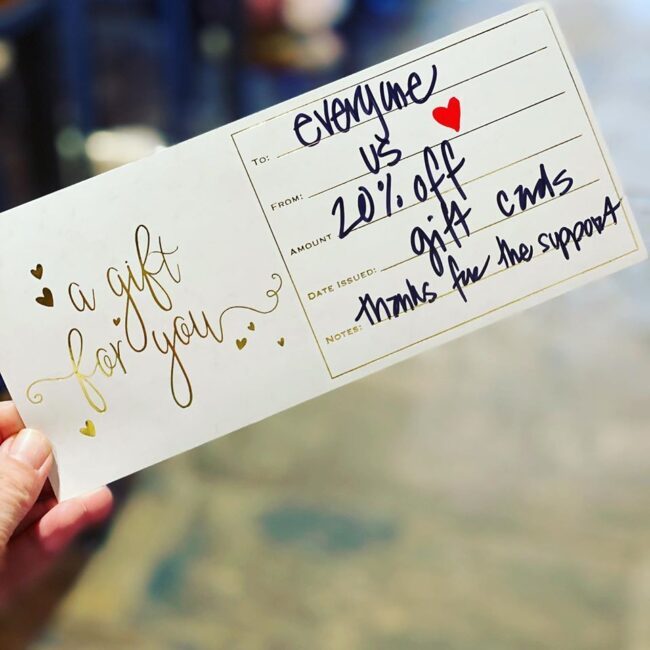 a gift
for you
TO: everyone
FROM: us
AMOUNT 20% off
DATE ISSUED: gift cards
NOTES: thanks for the support